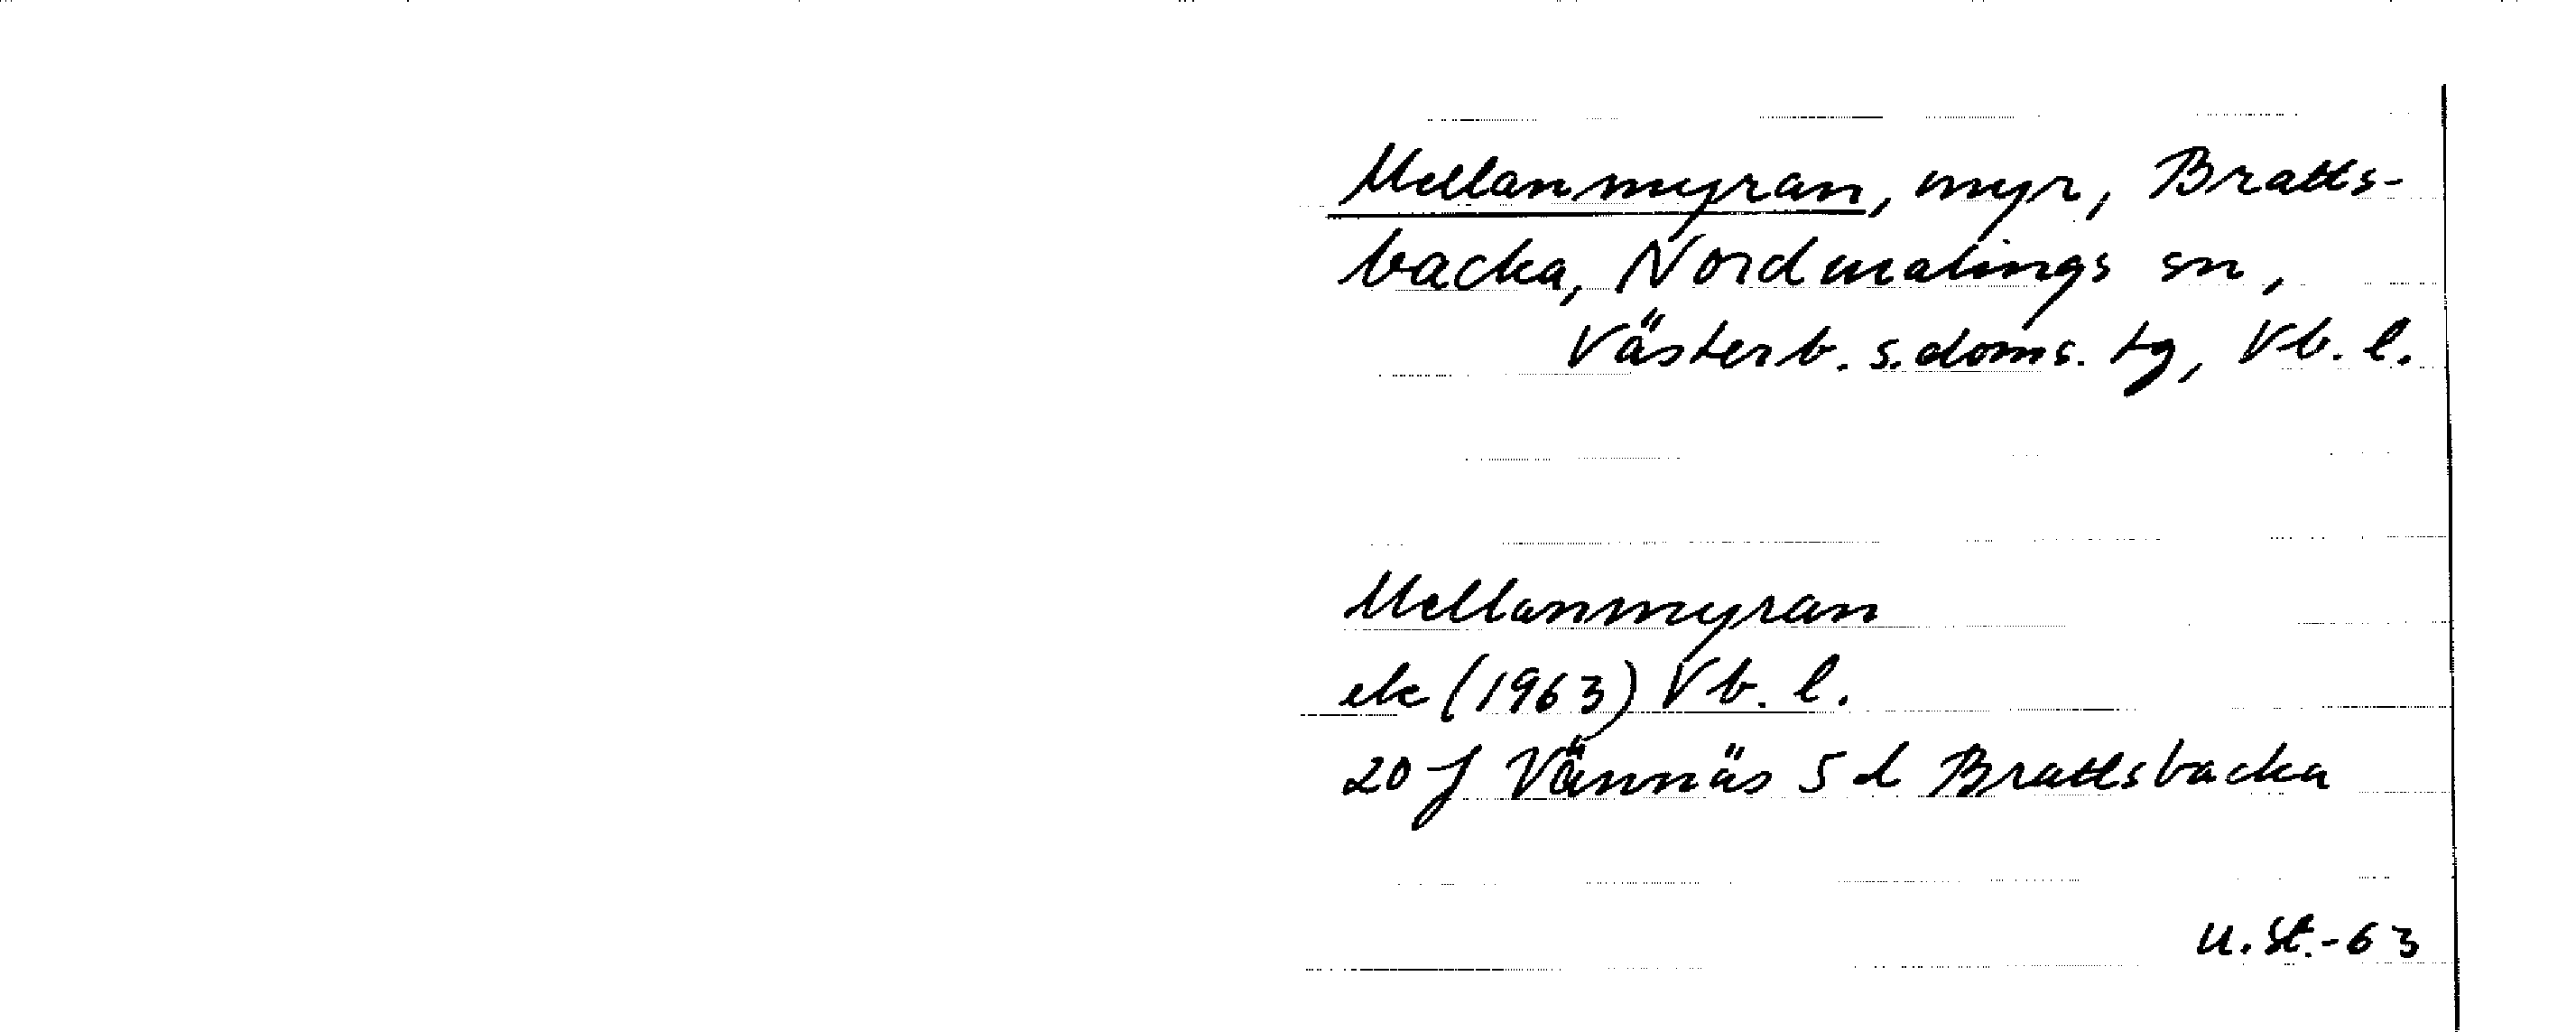 Mellanmyran, myr, Bratts-
backa, Nordmalings sn,
Västerb. s. doms. tg, Vb. l.
Mellanmyran
ek (1963) Vb. l.
20 J Vännäs 5 d Brattsbacka
U. St. -63